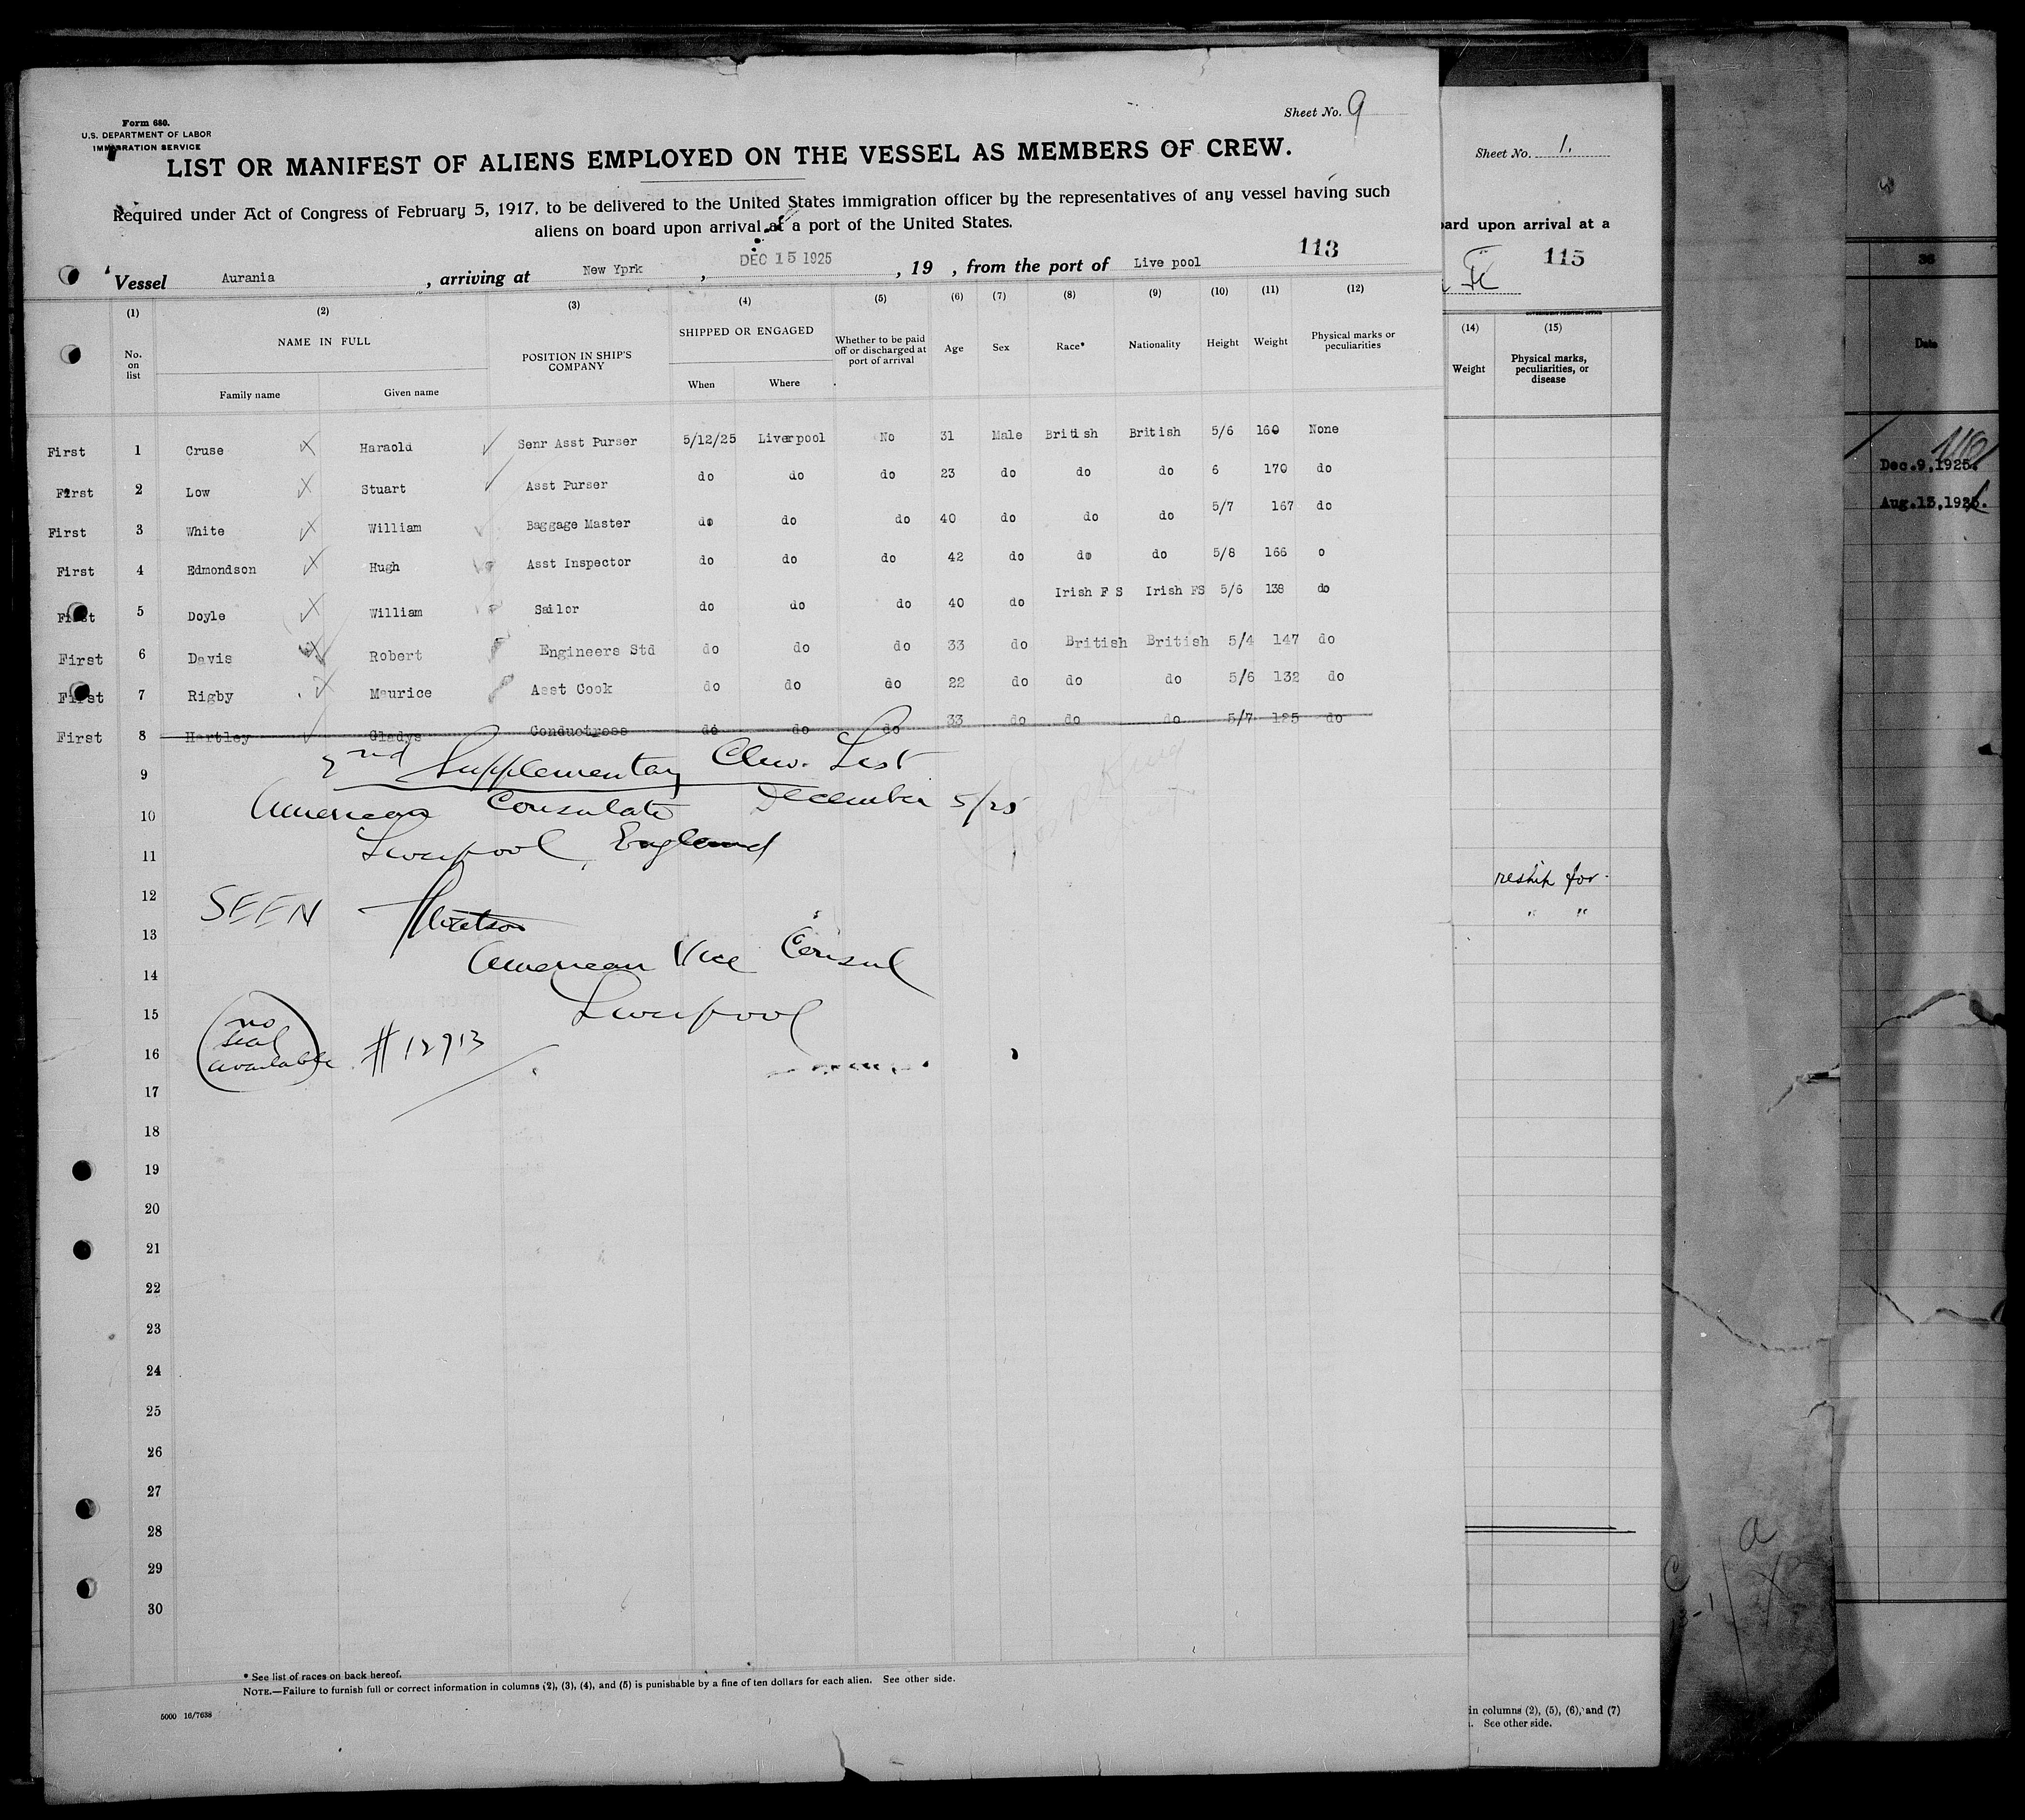 Form 680.
U.S. DEPARTMENT OF LABOR
IMMIGRATION SERVICE
Sheet No. 9
LIST OR MANIFEST OF ALIENS EMPLOYED ON THE VESSEL AS MEMBERS OF CREW.
Required under Act of Congress of February 5, 1917, to be delivered to the United States immigration officer by the representatives of any vessel having such
aliens on board upon arrival at a port of the United States.
113
Vessel Aurania , arriving at New Yprk , DEC 15 1925 , 19 , from the port of Live pool
(1) (2) (3) (4) (5) (6) (7) (8) (9) (10) (11) (12)
No. on list NAME IN FULL POSITION IN SHIP'S COMPANY SHIPPED OR ENGAGED Whether to be paid off or discharged at port of arrival Age Sex Race* Nationality Height Weight Physical marks or peculiarities
Family name Given name When Where
First 1 Cruse Haraold Senr Asst Purser 5/12/25 Liverpool No 31 Male British British 5/6 160 None
First 2 Low Stuart Asst Purser do do do 23 do do do 6 170 do
First 3 White William Baggage Master do do do 40 do do do 5/7 167 do
First 4 Edmondson Hugh Asst Inspector do do do 42 do do do 5/8 166 o
First 5 Doyle William Sailor do do do 40 do Irish F S Irish FS 5/6 138 do
First 6 Davis Robert Engineers Std do do do 33 do British British 5/4 147 do
First 7 Rigby Maurice Asst Cook do do do 22 do do do 5/6 132 do
First 8 Hartley Gladys Conductress do do do 33 do do do 5/7 125 do
2nd Supplementary Crew List
9
American Consulate December 5/25
10
Liverpool, England
11
12
SEEN
13
American Vice Consul
14
Liverpool
15
no seal available #12913
16
17
18
19
20
21
22
23
24
25
26
27
28
29
30
* See list of races on back hereof.
NOTE.—Failure to furnish full or correct information in columns (2), (3), (4), and (5) is punishable by a fine of ten dollars for each alien. See other side.
5000 16/7638
Sheet No. 1.
oard upon arrival at a
115
(14) (15)
Weight Physical marks, peculiarities, or disease
reship for
" "
in columns (2), (5), (6), and (7)
. See other side.
36
Date
116
Dec.9,1925.
Aug.13,1925.